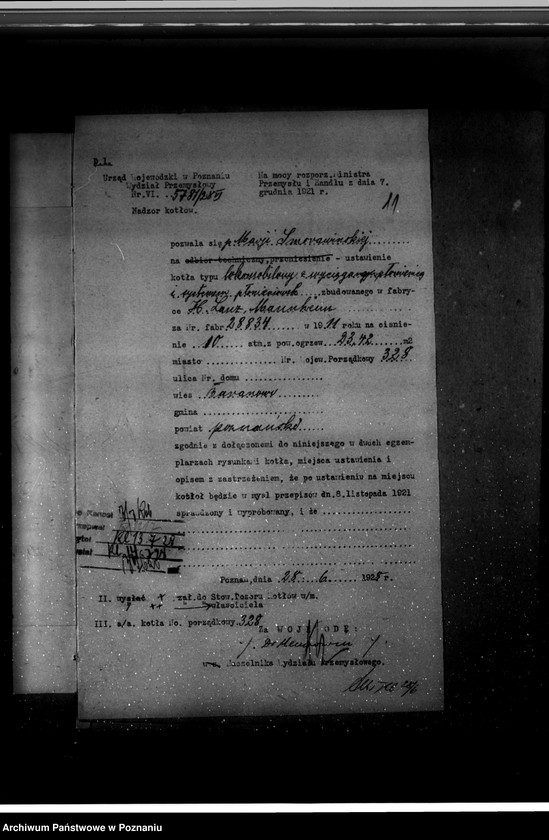 Urząd Wojewódzki w Poznaniu
Wydział Przemysłowy
Nr.VI. 5781/28 VI
Nadzor kotłów.
Na mocy rozporz. Ministra
Przemysłu i Handlu z dnia 7.
grudnia 1921 r.
11
pozwala się p. Marji
na odbior techniczny, przeniesienie - ustawienie
kotła typu lokomobilowy z
i zbudowanego w fabry-
ce H. Lanz, Mannheim
za Nr. fabr 28834 w 1911 roku na ciśnie-
nie 10 atm. z pow. ogrzew. 23,42 m2
miasto Nr. Wojew. Porządkowy 328
ulica Nr. domu
wieś Baranowo
gmina
powiat poznański
zgodnie z dołączonemi do niniejszego w dwuch egzem-
plarzach rysunkami kotła, miejsca ustawienia i
opisem z zastrzeżeniem, że po ustawieniu na miejscu
kotłoł będzie w myśl przepisów dn. 8. listopada 1921
sprawdzony i wypróbowany, i że
Poznań, dnia 28. 6. 1928 r.
II. wysłać zał. do Stow. Dozoru Kotłów w/m.
właściciela
III. a/a. kotła No. porządkowy 328
Za WOJEWODĘ:
Naczelnika Wydziału Przemysłowego.
Archiwum Państwowe w Poznaniu